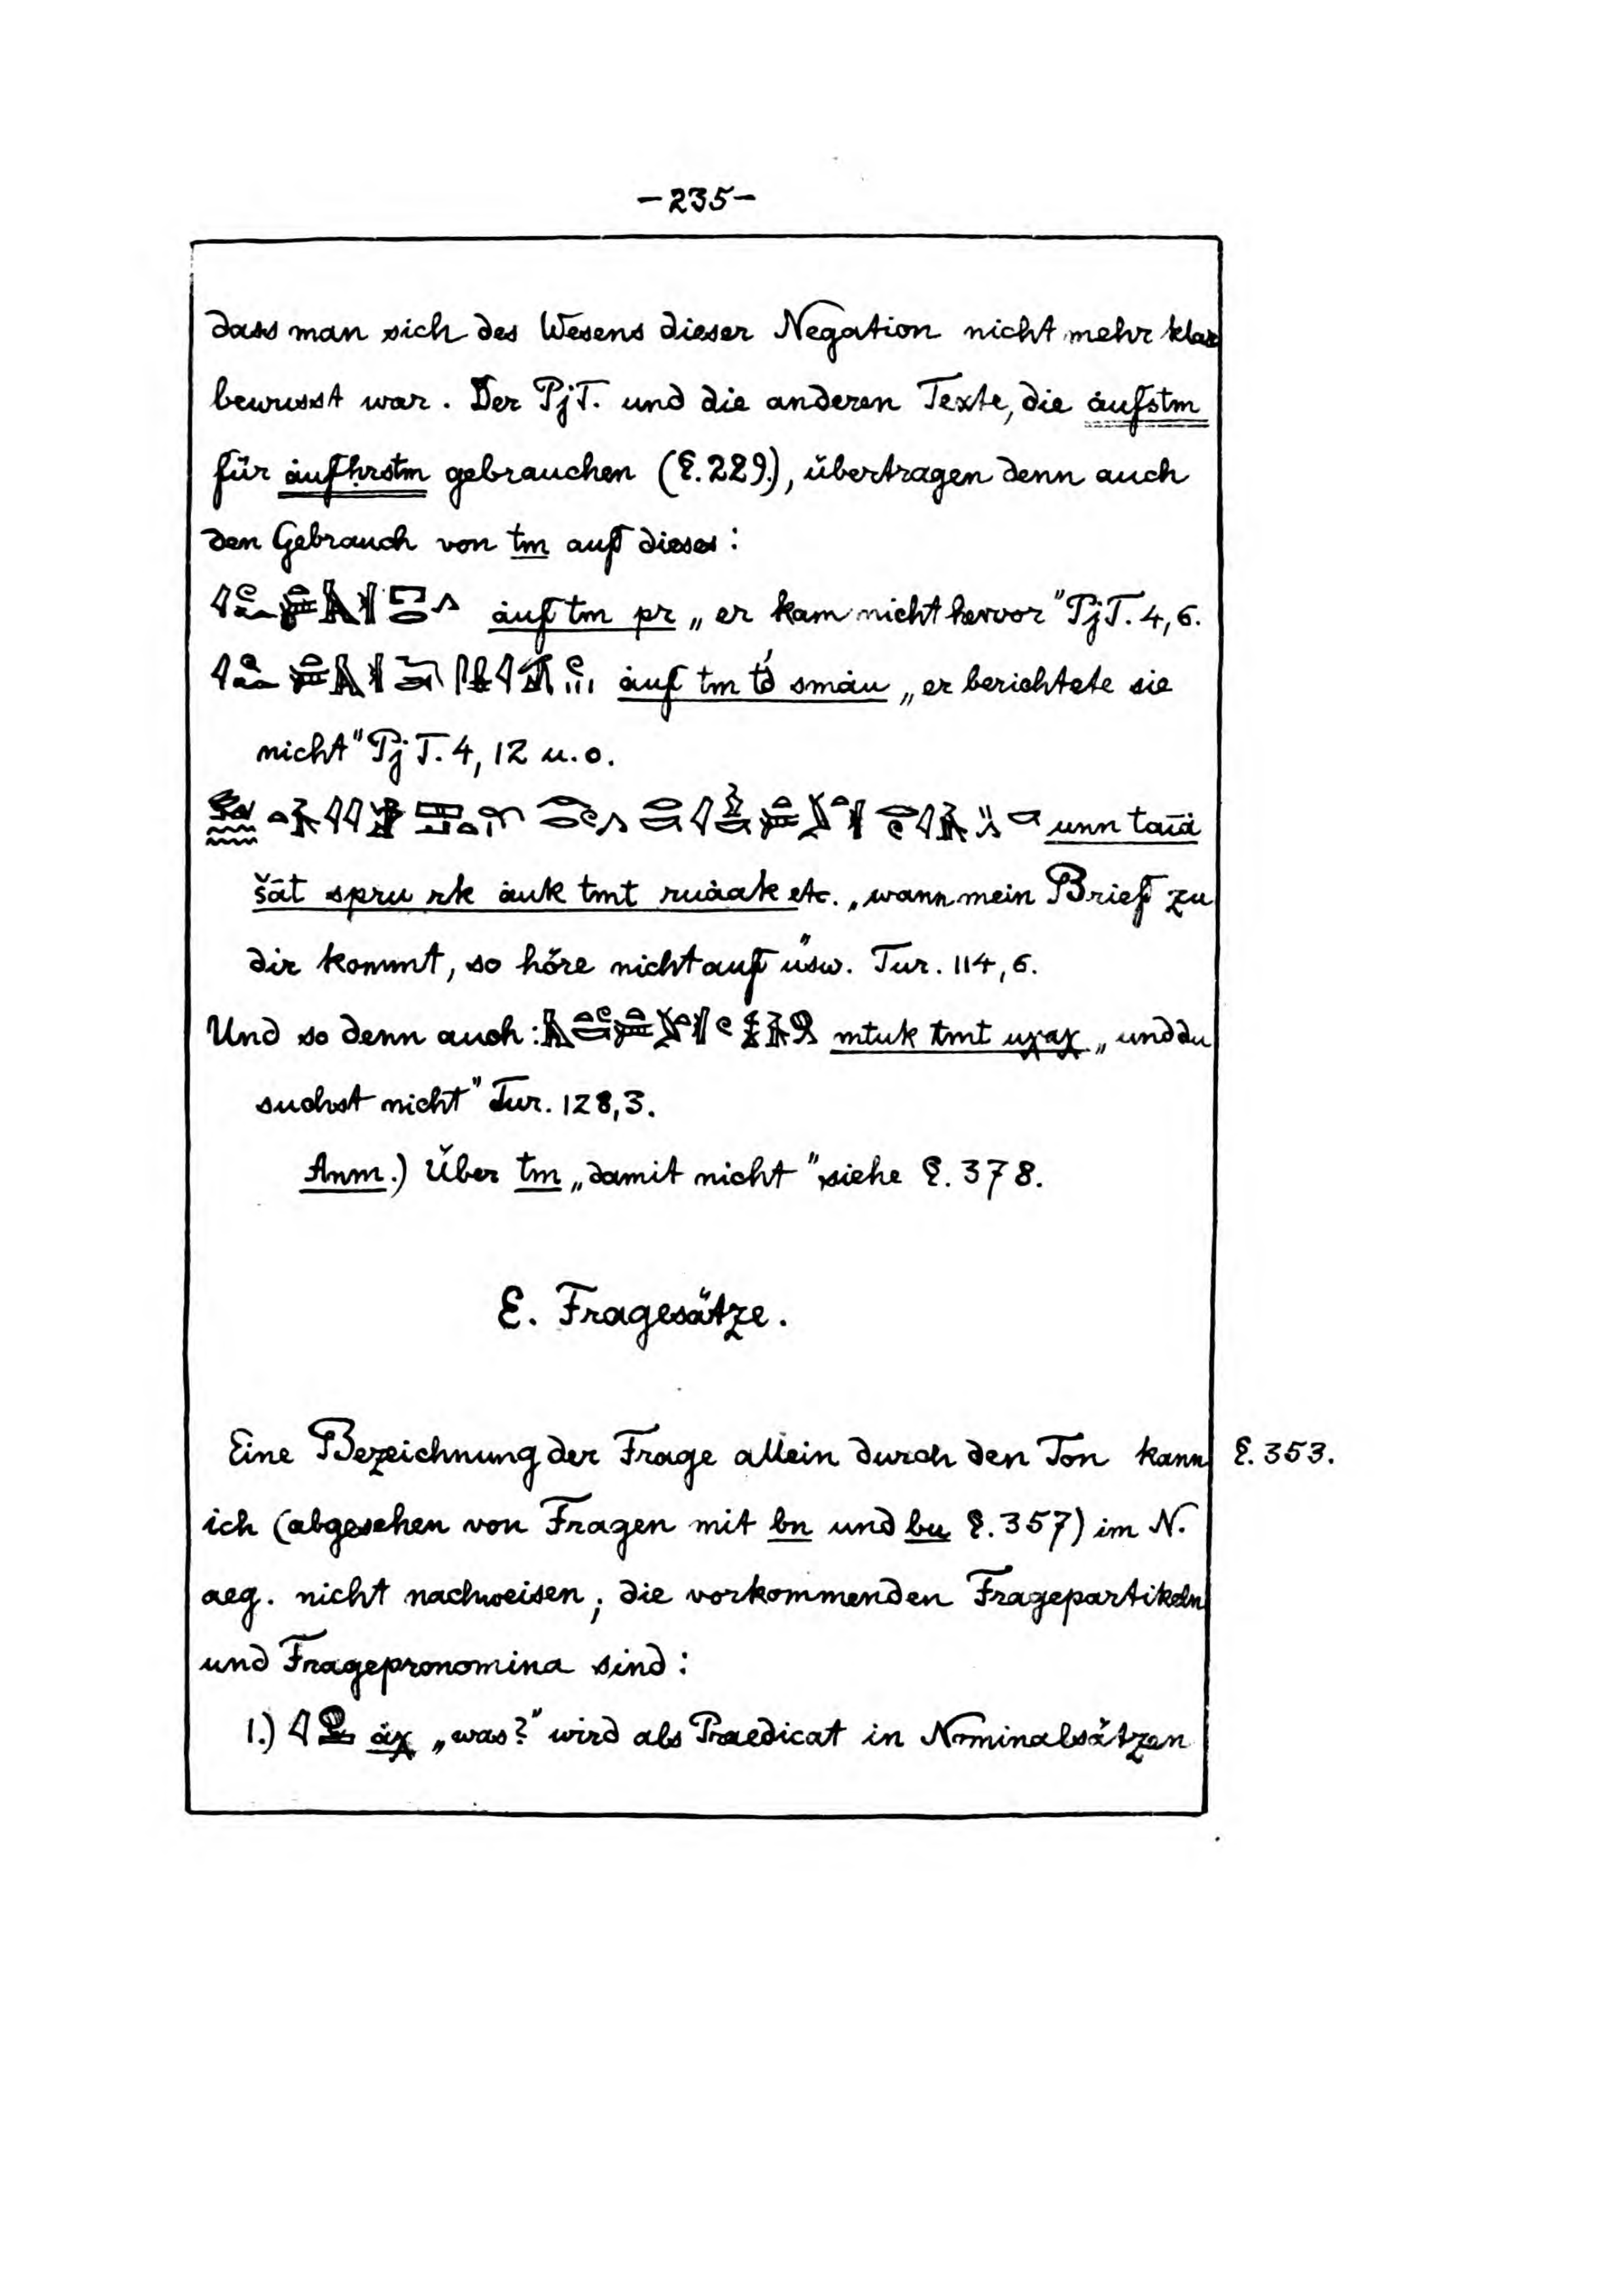 -235-
dass man sich des Wesens dieser Negation nicht mehr klar
bewusst war. Der PjT. und die anderen Texte, die ȧufstm
für ȧufḥrstm gebrauchen (§.229.), übertragen denn auch
den Gebrauch von tm auf dieses:
ȧuf tm pr „er kam nicht hervor" PjT. 4,6.
ȧuf tm smȧu „er berichtete sie
nicht" PjT. 4, 12 u. o.
unn taiȧ
šāt spru rk ȧuk tmt ruȧak etc. „wann mein Brief zu
dir kommt, so höre nicht auf" usw. Tur. 114, 6.
Und so denn auch: mtuk tmt uχaχ „und du
suchst nicht" Tur. 128,3.
Anm.) Über tm „damit nicht" siehe §. 378.
E. Fragesätze.
Eine Bezeichnung der Frage allein durch den Ton kann §. 353.
ich (abgesehen von Fragen mit bn und bu §. 357) im N.
aeg. nicht nachweisen; die vorkommenden Fragepartikeln
und Fragepronomina sind:
1.) ȧχ „was?" wird als Praedicat in Nominalsätzen